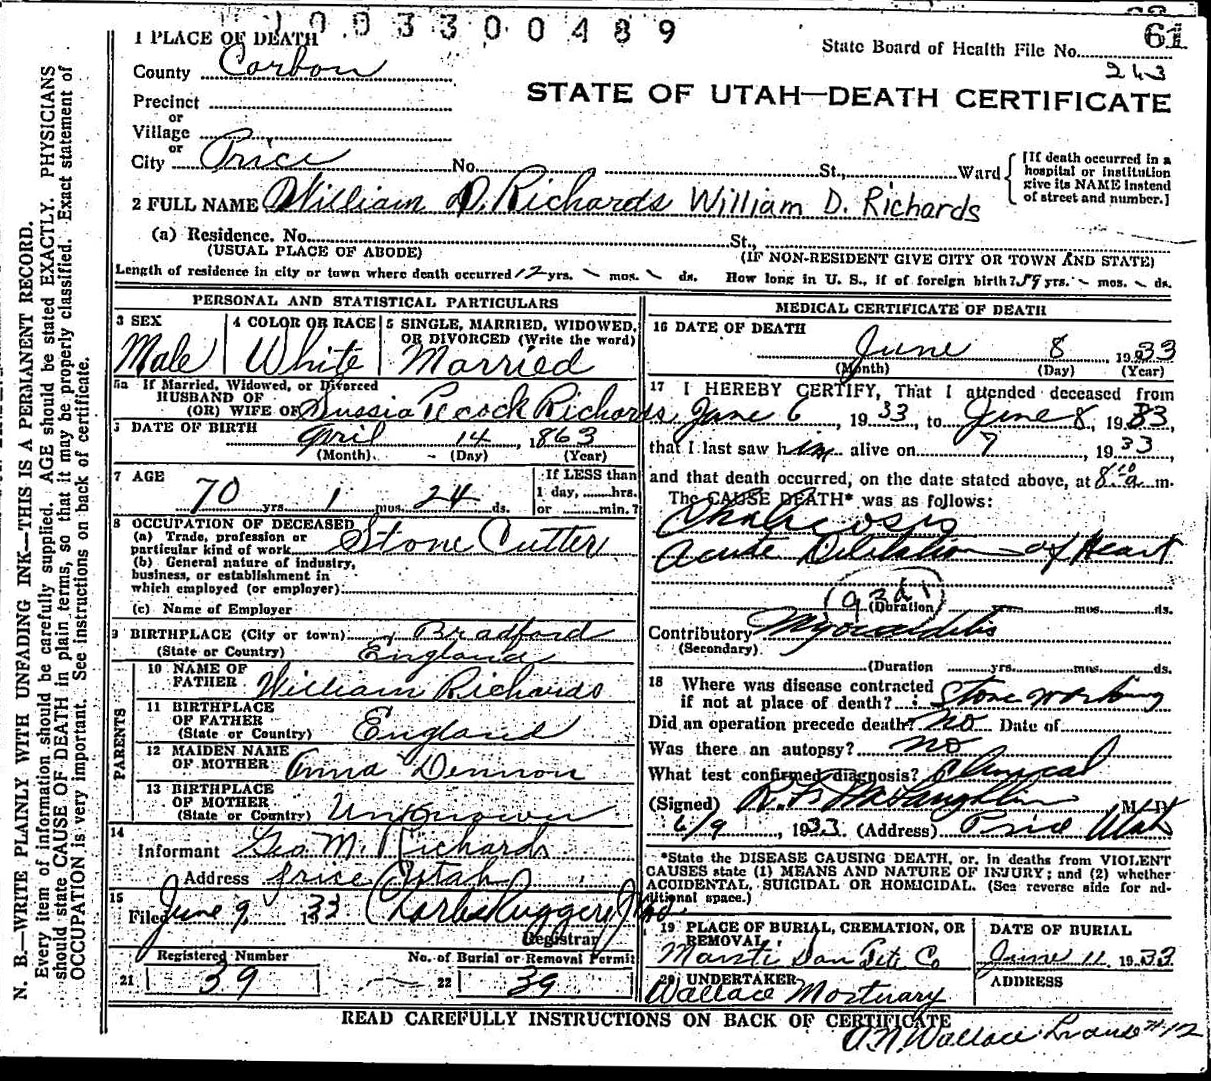 1003300489
61
1 PLACE OF DEATH
State Board of Health File No.
243
County Carbon
STATE OF UTAH—DEATH CERTIFICATE
Precinct
or
Village
or
City Price No. St., Ward
[If death occurred in a hospital or institution give its NAME instead of street and number.]
2 FULL NAME William D. Richards William D. Richards
(a) Residence. No. St.,
(USUAL PLACE OF ABODE) (IF NON-RESIDENT GIVE CITY OR TOWN AND STATE)
Length of residence in city or town where death occurred 12 yrs. mos. ds. How long in U. S., if of foreign birth? 59 yrs. mos. ds.
PERSONAL AND STATISTICAL PARTICULARS
3 SEX Male
4 COLOR OR RACE White
5 SINGLE, MARRIED, WIDOWED, OR DIVORCED (Write the word) Married
5a If Married, Widowed, or Divorced
HUSBAND OF
(OR) WIFE OF Sussia Pecock Richards
6 DATE OF BIRTH April 14, 1863
(Month) (Day) (Year)
7 AGE
70 yrs. 1 mos. 24 ds.
If LESS than
1 day, hrs.
or min.?
8 OCCUPATION OF DECEASED
(a) Trade, profession or
particular kind of work Stone Cutter
(b) General nature of industry,
business, or establishment in
which employed (or employer)
(c) Name of Employer
9 BIRTHPLACE (City or town) Bradford
(State or Country) England
PARENTS
10 NAME OF
FATHER William Richards
11 BIRTHPLACE
OF FATHER
(State or Country) England
12 MAIDEN NAME
OF MOTHER Anna Dennon
13 BIRTHPLACE
OF MOTHER
(State or Country) Unknown
14
Informant Geo M. Richards
Address Price Utah
15
Filed June 9, 1933 Charles Ruggeri
Registrar
Registered Number No. of Burial or Removal Permit
21 39 22 39
MEDICAL CERTIFICATE OF DEATH
16 DATE OF DEATH
June 8, 1933
(Month) (Day) (Year)
17 I HEREBY CERTIFY, That I attended deceased from
June 6, 1933, to June 8, 1933,
that I last saw him alive on 7, 1933,
and that death occurred, on the date stated above, at 8:10 a m.
The CAUSE DEATH* was as follows:
Chalicosis
Acute Dilitation of Heart
93d1
(Duration mos. ds.
Contributory Myocarditis
(Secondary)
(Duration yrs. mos. ds.
18 Where was disease contracted
if not at place of death? Stone working
Did an operation precede death? no Date of
Was there an autopsy? no
What test confirmed diagnosis? Clinical
(Signed) R. F. McLaughlin M. D.
6/9, 1933. (Address) Price Utah
*State the DISEASE CAUSING DEATH, or, in deaths from VIOLENT
CAUSES state (1) MEANS AND NATURE OF INJURY; and (2) whether
ACCIDENTAL, SUICIDAL OR HOMICIDAL. (See reverse side for ad-
ditional space.)
19 PLACE OF BURIAL, CREMATION, OR
REMOVAL
Manti San Pete Co
DATE OF BURIAL
June 11, 1933
20 UNDERTAKER
Wallace Mortuary
ADDRESS
READ CAREFULLY INSTRUCTIONS ON BACK OF CERTIFICATE
A. N. Wallace #12
N. B.—WRITE PLAINLY WITH UNFADING INK—THIS IS A PERMANENT RECORD.
Every item of information should be carefully supplied. AGE should be stated EXACTLY. PHYSICIANS
should state CAUSE OF DEATH in plain terms, so that it may be properly classified. Exact statement of
OCCUPATION is very important. See instructions on back of certificate.